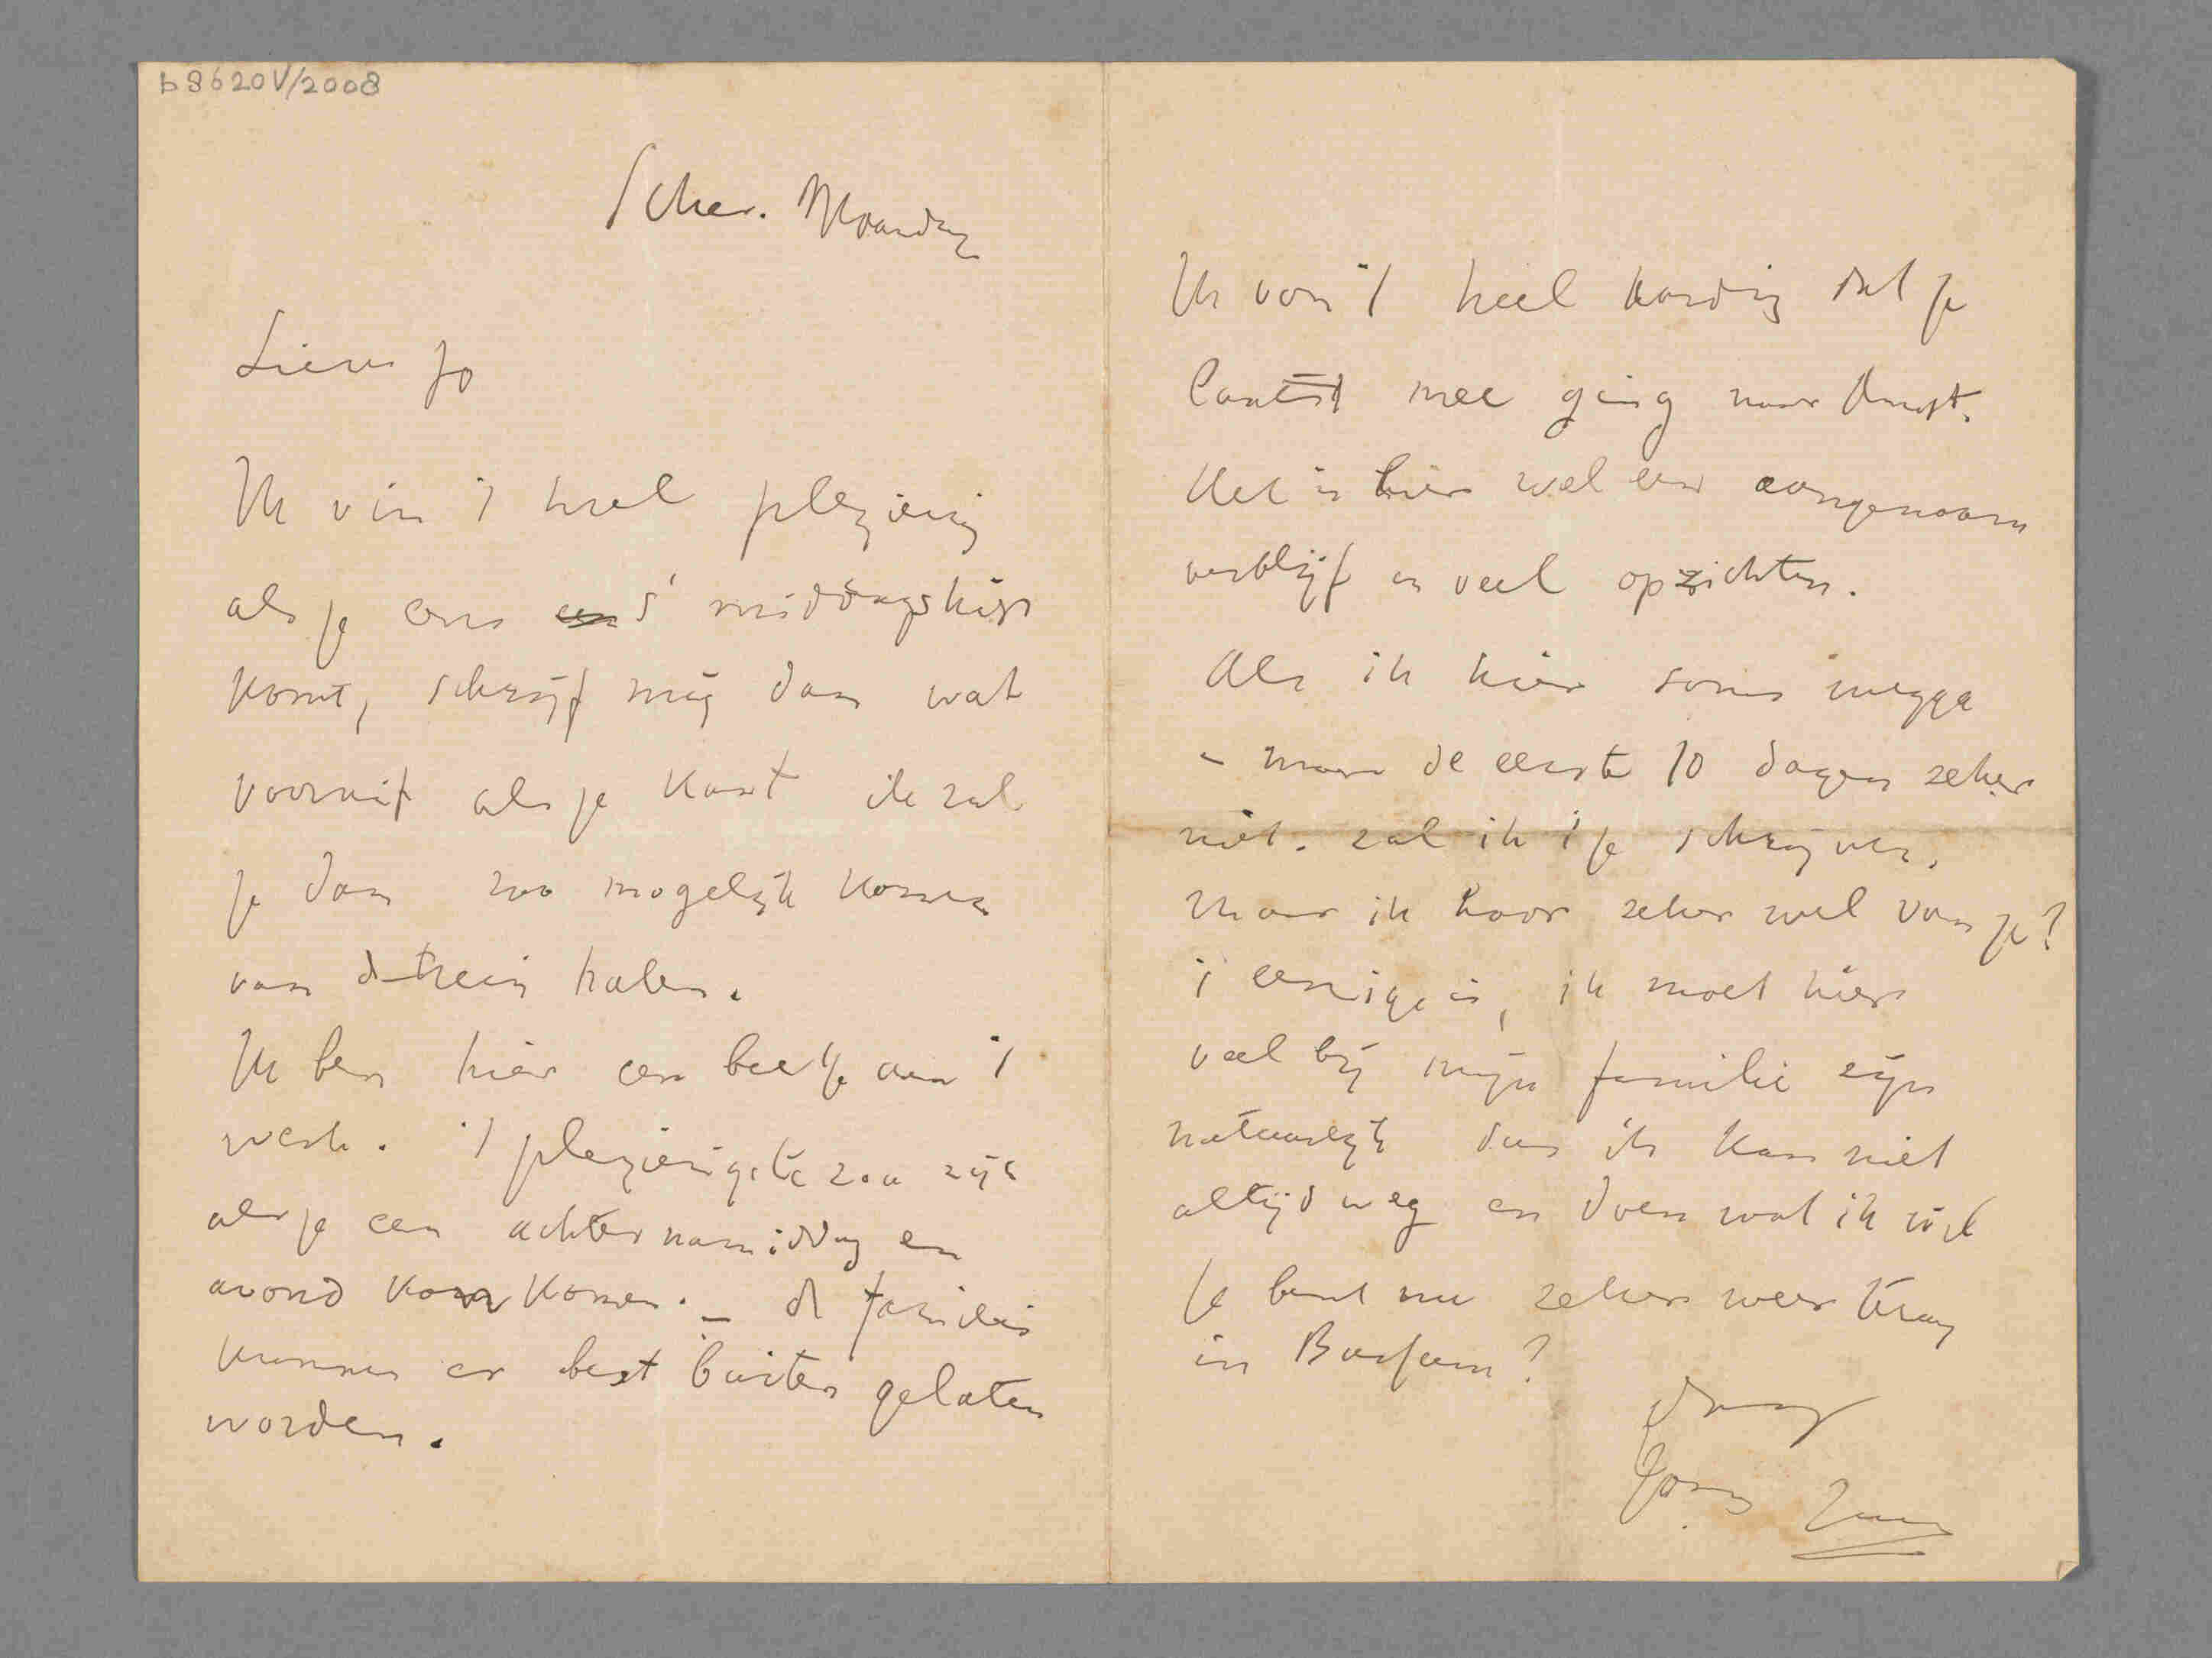 b8620V/2008
Schev. Maandag
Lieve Jo
Ik vin 't heel plezierig
als je eens een s' middags hier
komt, schrijf mij dan wat
vooruit als je komt ik zal
je dan zoo mogelijk komen
van d trein halen.
Ik ben hier een beetje aan 't
werk. 't plezierigste zou zijn
als je een achternamiddag en
avond kon komen. – de familie's
kunnen er best buiten gelaten
worden.
Ik von 't heel aardig dat je
laatst mee ging naar
Het is hier wel een aangenaam
verblijf in veel opzichten.
Als ik hier soms wegga
– maar de eerste 10 dagen zeker
niet. zal ik 't je schrijven.
Maar ik hoor zeker wel van je?
't eenige is, ik moet hier
veel bij mijn familie zijn
natuurlijk dus ik kan niet
altijd weg en doen wat ik wil
Je bent nu zeker weer terug
in Bussum?
Dag